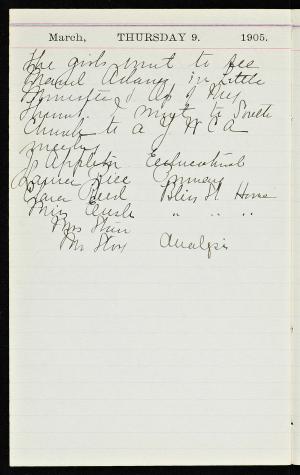 March, THURSDAY 9. 1905.
The girls went to see
Maud Adams in Little
Minister & Ap of Dey
Hunt. I went to South
Church to a Y W C A
meeting
Js Appleton Educational
Laura Rice Primary
Clara Reed Bliss St Home
Miss " " "
Mrs Starr
Mr Analysis